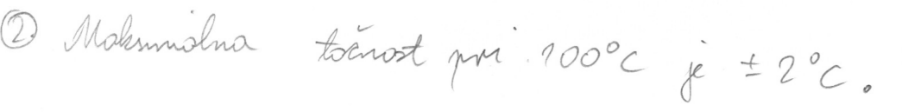 ② Maksimalna točnost pri 100°C je ± 2°C.